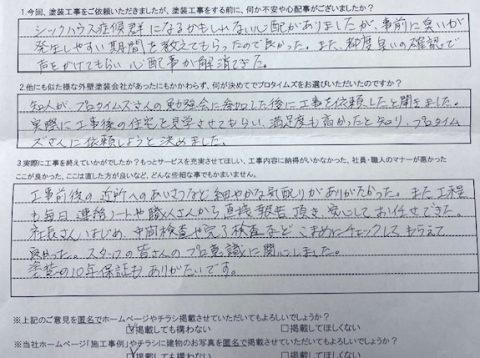 1.今回、塗装工事をご依頼いただきましたが、塗装工事をする前に、何か不安や心配事がございましたか？
シックハウス症候群になるかもしれない心配がありましたが、事前に臭いが
発生しやすい期間を教えてもらったので良かった。また、都度臭いの確認で
声をかけてもらい心配事が解消できた。
2.他にも似た様な外壁塗装会社があったにもかかわらず、何が決めてでプロタイムズをお選びいただいたのですか？
知人が、プロタイムズさんの勉強会に参加した後に工事を依頼したと聞きました。
実際に工事後の住宅を見学させてもらい、満足度も高かったと知り、プロタイム
ズさんに依頼しようと決めました。
3.実際に工事を終えていかがでしたか？もっとサービスを充実させてほしい、工事内容に納得がいかなかった、社員・職人のマナーが悪かった
ここが良かった、ここは直した方が良いなど、どんな些細な事でもかまいません。
工事前後の近所へのあいさつなど細やかな気配りがありがたかった。また工程
も毎日連絡ノートや職人さんから直接報告頂き、安心してお任せできた。
社長さんはじめ、中間検査や完了検査など こまめにチェックしてもらえて
良かった。スタッフの皆さんのプロ意識に関心しました。
塗装の10年保証もありがたいです。
※上記のご意見を匿名でホームページやチラシ掲載させていただいてもよろしいでしょうか？
☑掲載しても構わない □掲載してほしくない
※当社ホームページ「施工事例」やチラシに建物のお写真を匿名で掲載させていただいてもよろしいでしょうか？
☑掲載しても構わない □掲載してほしくない